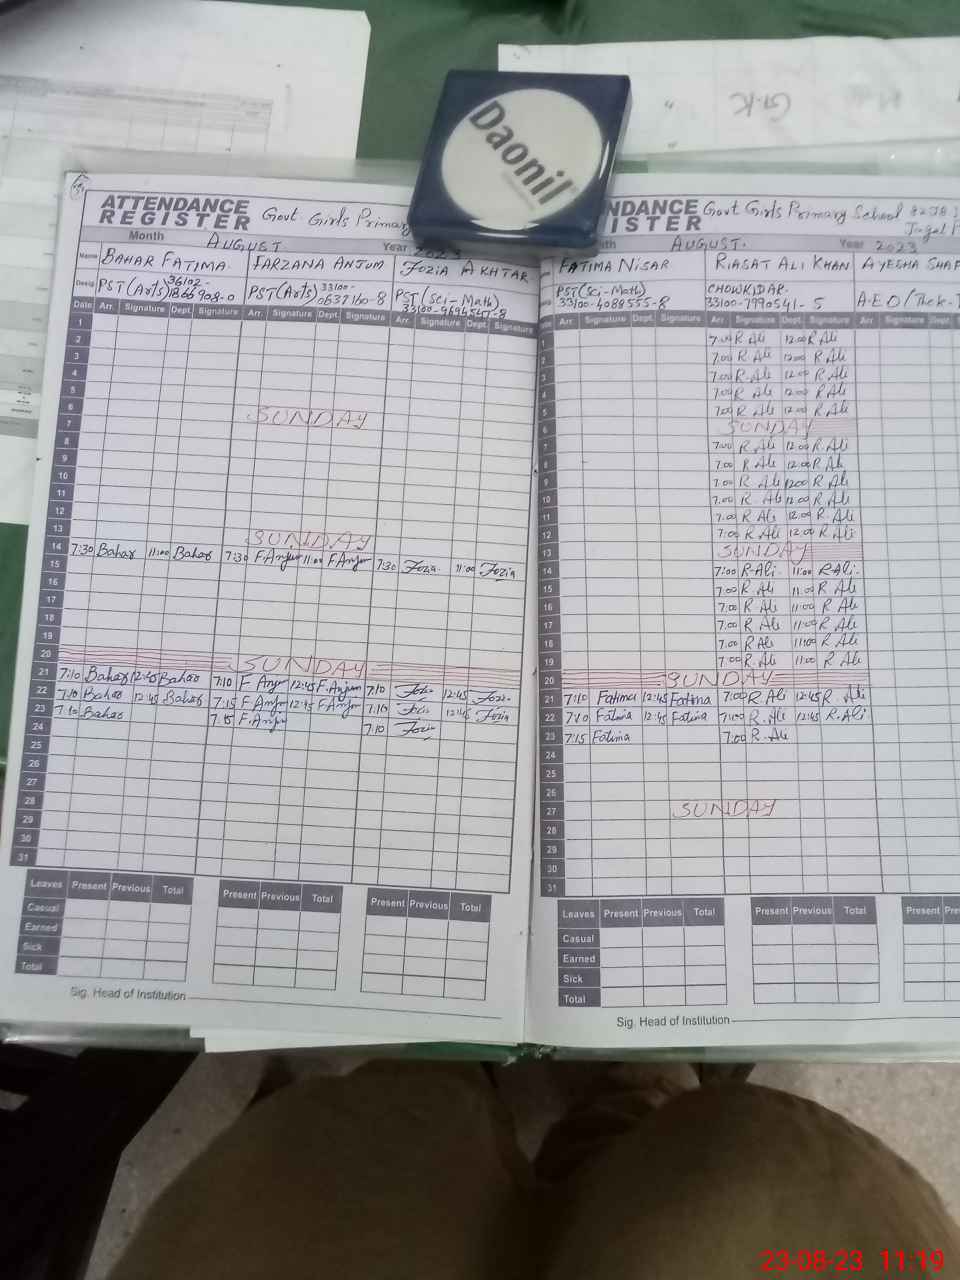 G.K
Daonil
ATTENDANCE
REGISTER
Govt. Girls Primary
Month
AUGUST.
Year 2023
Name
BAHAR FATIMA.
FARZANA ANJUM
FOZIA AKHTAR
Desig
PST(Arts)
PST(Arts)
PST(Sci-Math)
Date Arr. Signature Dept. Signature Arr. Signature Dept. Signature Arr. Signature Dept. Signature
1
2
3
4
5
6
SUNDAY
7
8
9
10
11
12
13
SUNDAY
14 7:30 Bahar 11:00 Bahar 7:30 F Anjum 11:00 F Anjum 7:30 Fozia 11:00 Fozia
15
16
17
18
19
20 SUNDAY
21 7:10 Bahar 12:45 Bahar 7:10 F Anjum 12:45 F.Anjum 7:10 Fozia 12:45 Fozia
22 7:10 Bahar 12:45 Bahar 7:15 F Anjum 12:45 F Anjum 7:10 Fozia 12:45 Fozia
23 7:10 Bahar 7:15 F.Anjum 7:10 Fozia
24
25
26
27
28
29
30
31
Leaves Present Previous Total Present Previous Total Present Previous Total
Casual
Earned
Sick
Total
Sig. Head of Institution
NDANCE
ISTER
Govt Girls Primary School
AUGUST.
Year 2023
FATIMA NISAR
RIASAT ALI KHAN
AYESHA
PST(Sci-Math)
33100-4088555-8
CHOWKIDAR.
33100-7990541-5
A.E.O
Arr. Signature Dept. Signature Arr. Signature Dept. Signature Arr. Signature Dept
1 7:00 R Ali 12:00 R Ali
2 7:00 R Ali 12:00 R Ali
3 7:00 R.Ali 12:00 R.Ali
4 7:00 R Ali 12:00 R.Ali
5 7:00 R Ali 12:00 R.Ali
6 SUNDAY
7 7:00 R Ali 12:00 R.Ali
8 7:00 R Ali 12:00 R Ali
9 7:00 R Ali 12:00 R Ali
10 7:00 R Ali 12:00 R.Ali
11 7:00 R Ali 12:00 R.Ali
12 7:00 R Ali 12:00 R.Ali
13 SUNDAY
14 7:00 R-Ali. 11:00 R Ali.
15 7:00 R.Ali 11:00 R Ali
16 7:00 R Ali 11:00 R Ali
17 7:00 R Ali 11:00 R Ali
18 7:00 R Ali 11:00 R Ali
19 7:00 R Ali 11:00 R Ali
20 SUNDAY
21 7:10 Fatima 12:45 Fatima 7:00 R Ali 12:45 R. Ali
22 7:10 Fatima 12:45 Fatima 7:00 R. Ali 12:45 R.Ali
23 7:15 Fatima 7:00 R.Ali
24
25
26
27 SUNDAY
28
29
30
31
Leaves Present Previous Total Present Previous Total Present
Casual
Earned
Sick
Total
Sig. Head of Institution
23-08-23 11:19